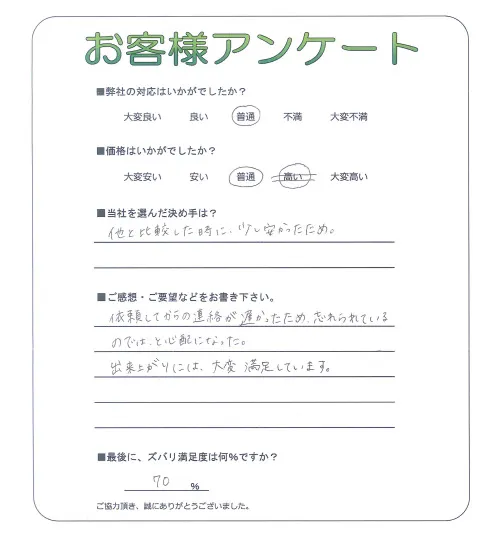 お客様アンケート
■弊社の対応はいかがでしたか?
大変良い 良い 普通 不満 大変不満
■価格はいかがでしたか?
大変安い 安い 普通 高い 大変高い
■当社を選んだ決め手は?
他と比較した時に、少し安かったため。
■ご感想・ご要望などをお書き下さい。
依頼してからの連絡が遅かったため、忘れられている
のでは、と心配になった。
出来上がりには、大変満足しています。
■最後に、ズバリ満足度は何%ですか?
70 %
ご協力頂き、誠にありがとうございました。